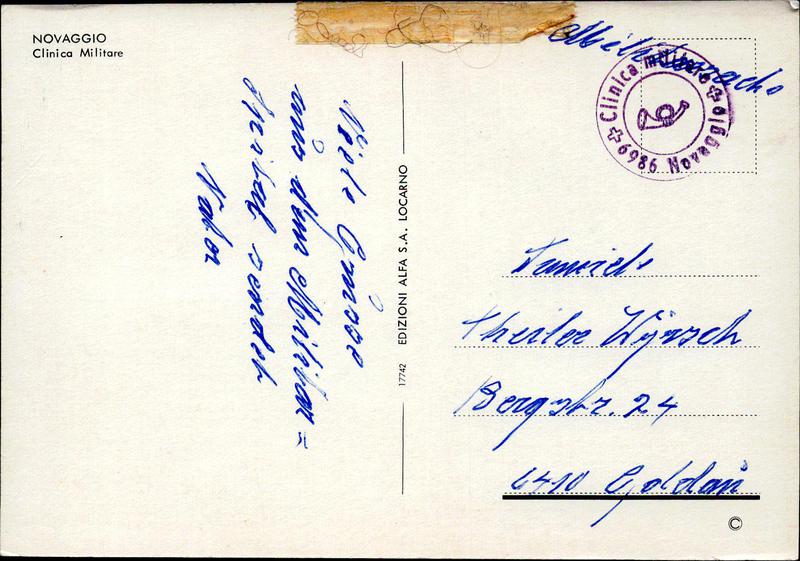 NOVAGGIO
Clinica Militare
Viele Grüsse
aus dem Militär=
spital sendet
Vater
17742 EDIZIONI ALFA S.A. LOCARNO
Clinica militare
6986 Novaggio
Familie
Theiler Wyrsch
Bergstr. 24
6410 Goldau
©